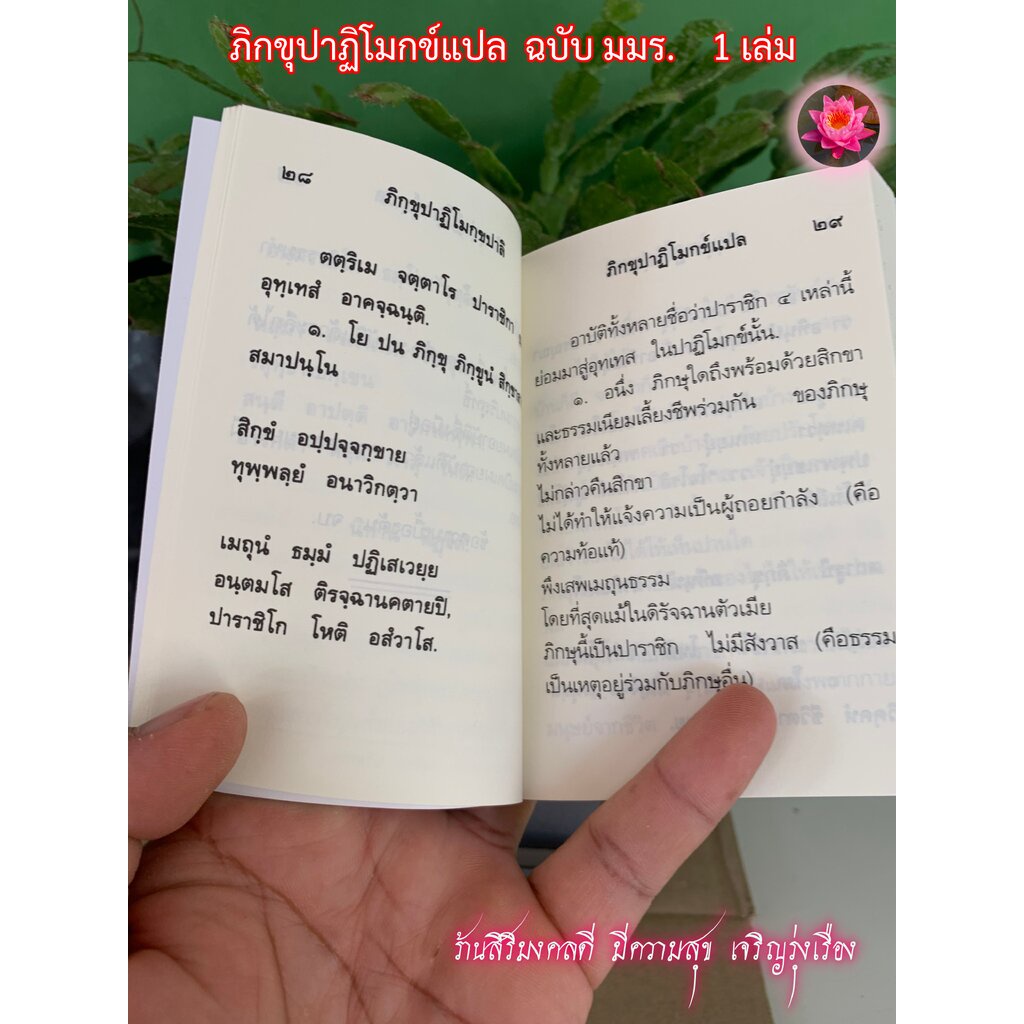 ภิกขุปาฏิโมกข์แปล ฉบับ มมร. 1 เล่ม
๒๘ ภิกฺขุปาฏิโมกฺขปาลิ
ตตฺริเม จตฺตาโร ปาราชิกา
อุทฺเทสํ อาคจฺฉนฺติ.
๑. โย ปน ภิกฺขุ ภิกฺขูนํ
สมาปนฺโน
สิกฺขํ อปฺปจฺจกฺขาย
ทุพฺพลฺยํ อนาวิกตฺวา
เมถุนํ ธมฺมํ ปฏิเสเวยฺย
อนฺตมโส ติรจฺฉานคตายปิ,
ปาราชิโก โหติ อสํวาโส.
ภิกขุปาฏิโมกข์แปล ๒๙
อาบัติทั้งหลายชื่อว่าปาราชิก ๔ เหล่านี้
ย่อมมาสู่อุทเทส ในปาฏิโมกข์นั้น.
๑. อนึ่ง ภิกษุใดถึงพร้อมด้วยสิกขา
และธรรมเนียมเลี้ยงชีพร่วมกัน ของภิกษุ
ทั้งหลายแล้ว
ไม่กล่าวคืนสิกขา
ไม่ได้ทำให้แจ้งความเป็นผู้ถอยกำลัง (คือ
ความท้อแท้)
พึงเสพเมถุนธรรม
โดยที่สุดแม้ในดิรัจฉานตัวเมีย
ภิกษุนี้เป็นปาราชิก ไม่มีสังวาส (คือธรรม
เป็นเหตุอยู่ร่วมกับภิกษุอื่น)
ร้านสิริมงคลดี มีความสุข เจริญรุ่งเรือง